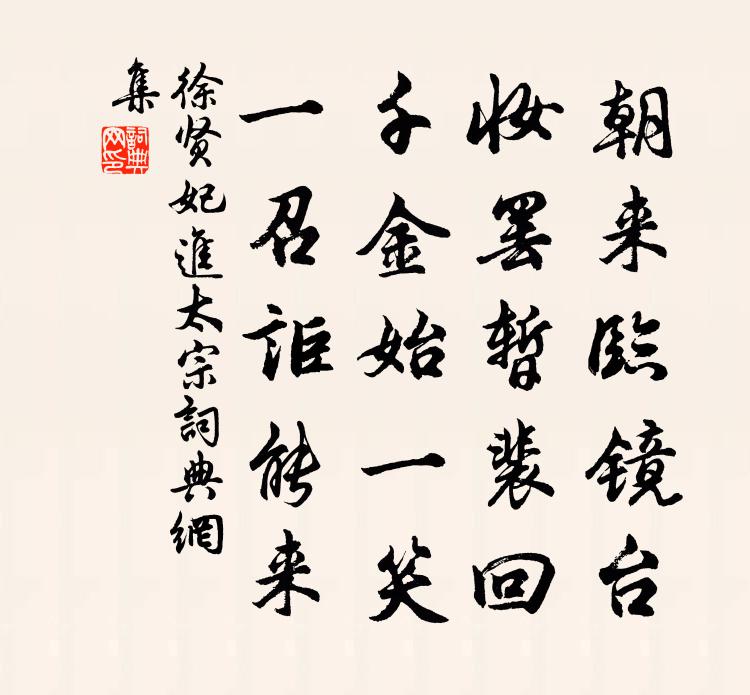 朝来臨镜台
妆罢暂裴回
千金始一笑
一召詎能来
徐贤妃進太宗詞典網
集
詞典网印